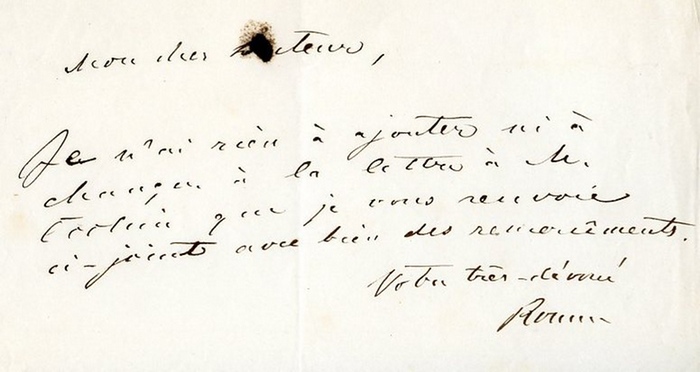 Mon cher
Je n'ai rien à ajouter ni à
changer à la lettre à M.
que je vous renvoie
ci-joint avec bien des remerciements.
Votre très-dévoué